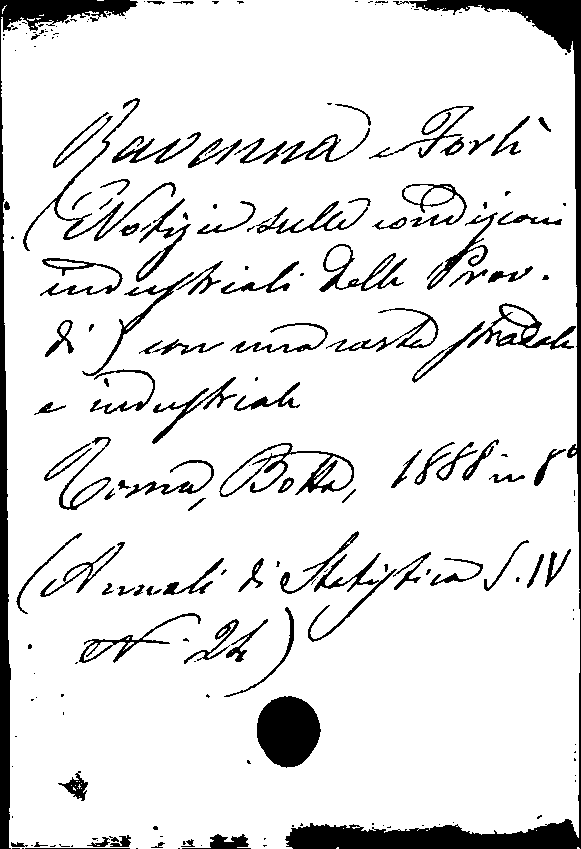 Ravenna e Forlì
(Notizie sulle condizioni
industriali delle Prov.
di) con una carta stradale
e industriale
Roma, Botta, 1888 in 8°
(Annali di Statistica S. IV
N. 24)